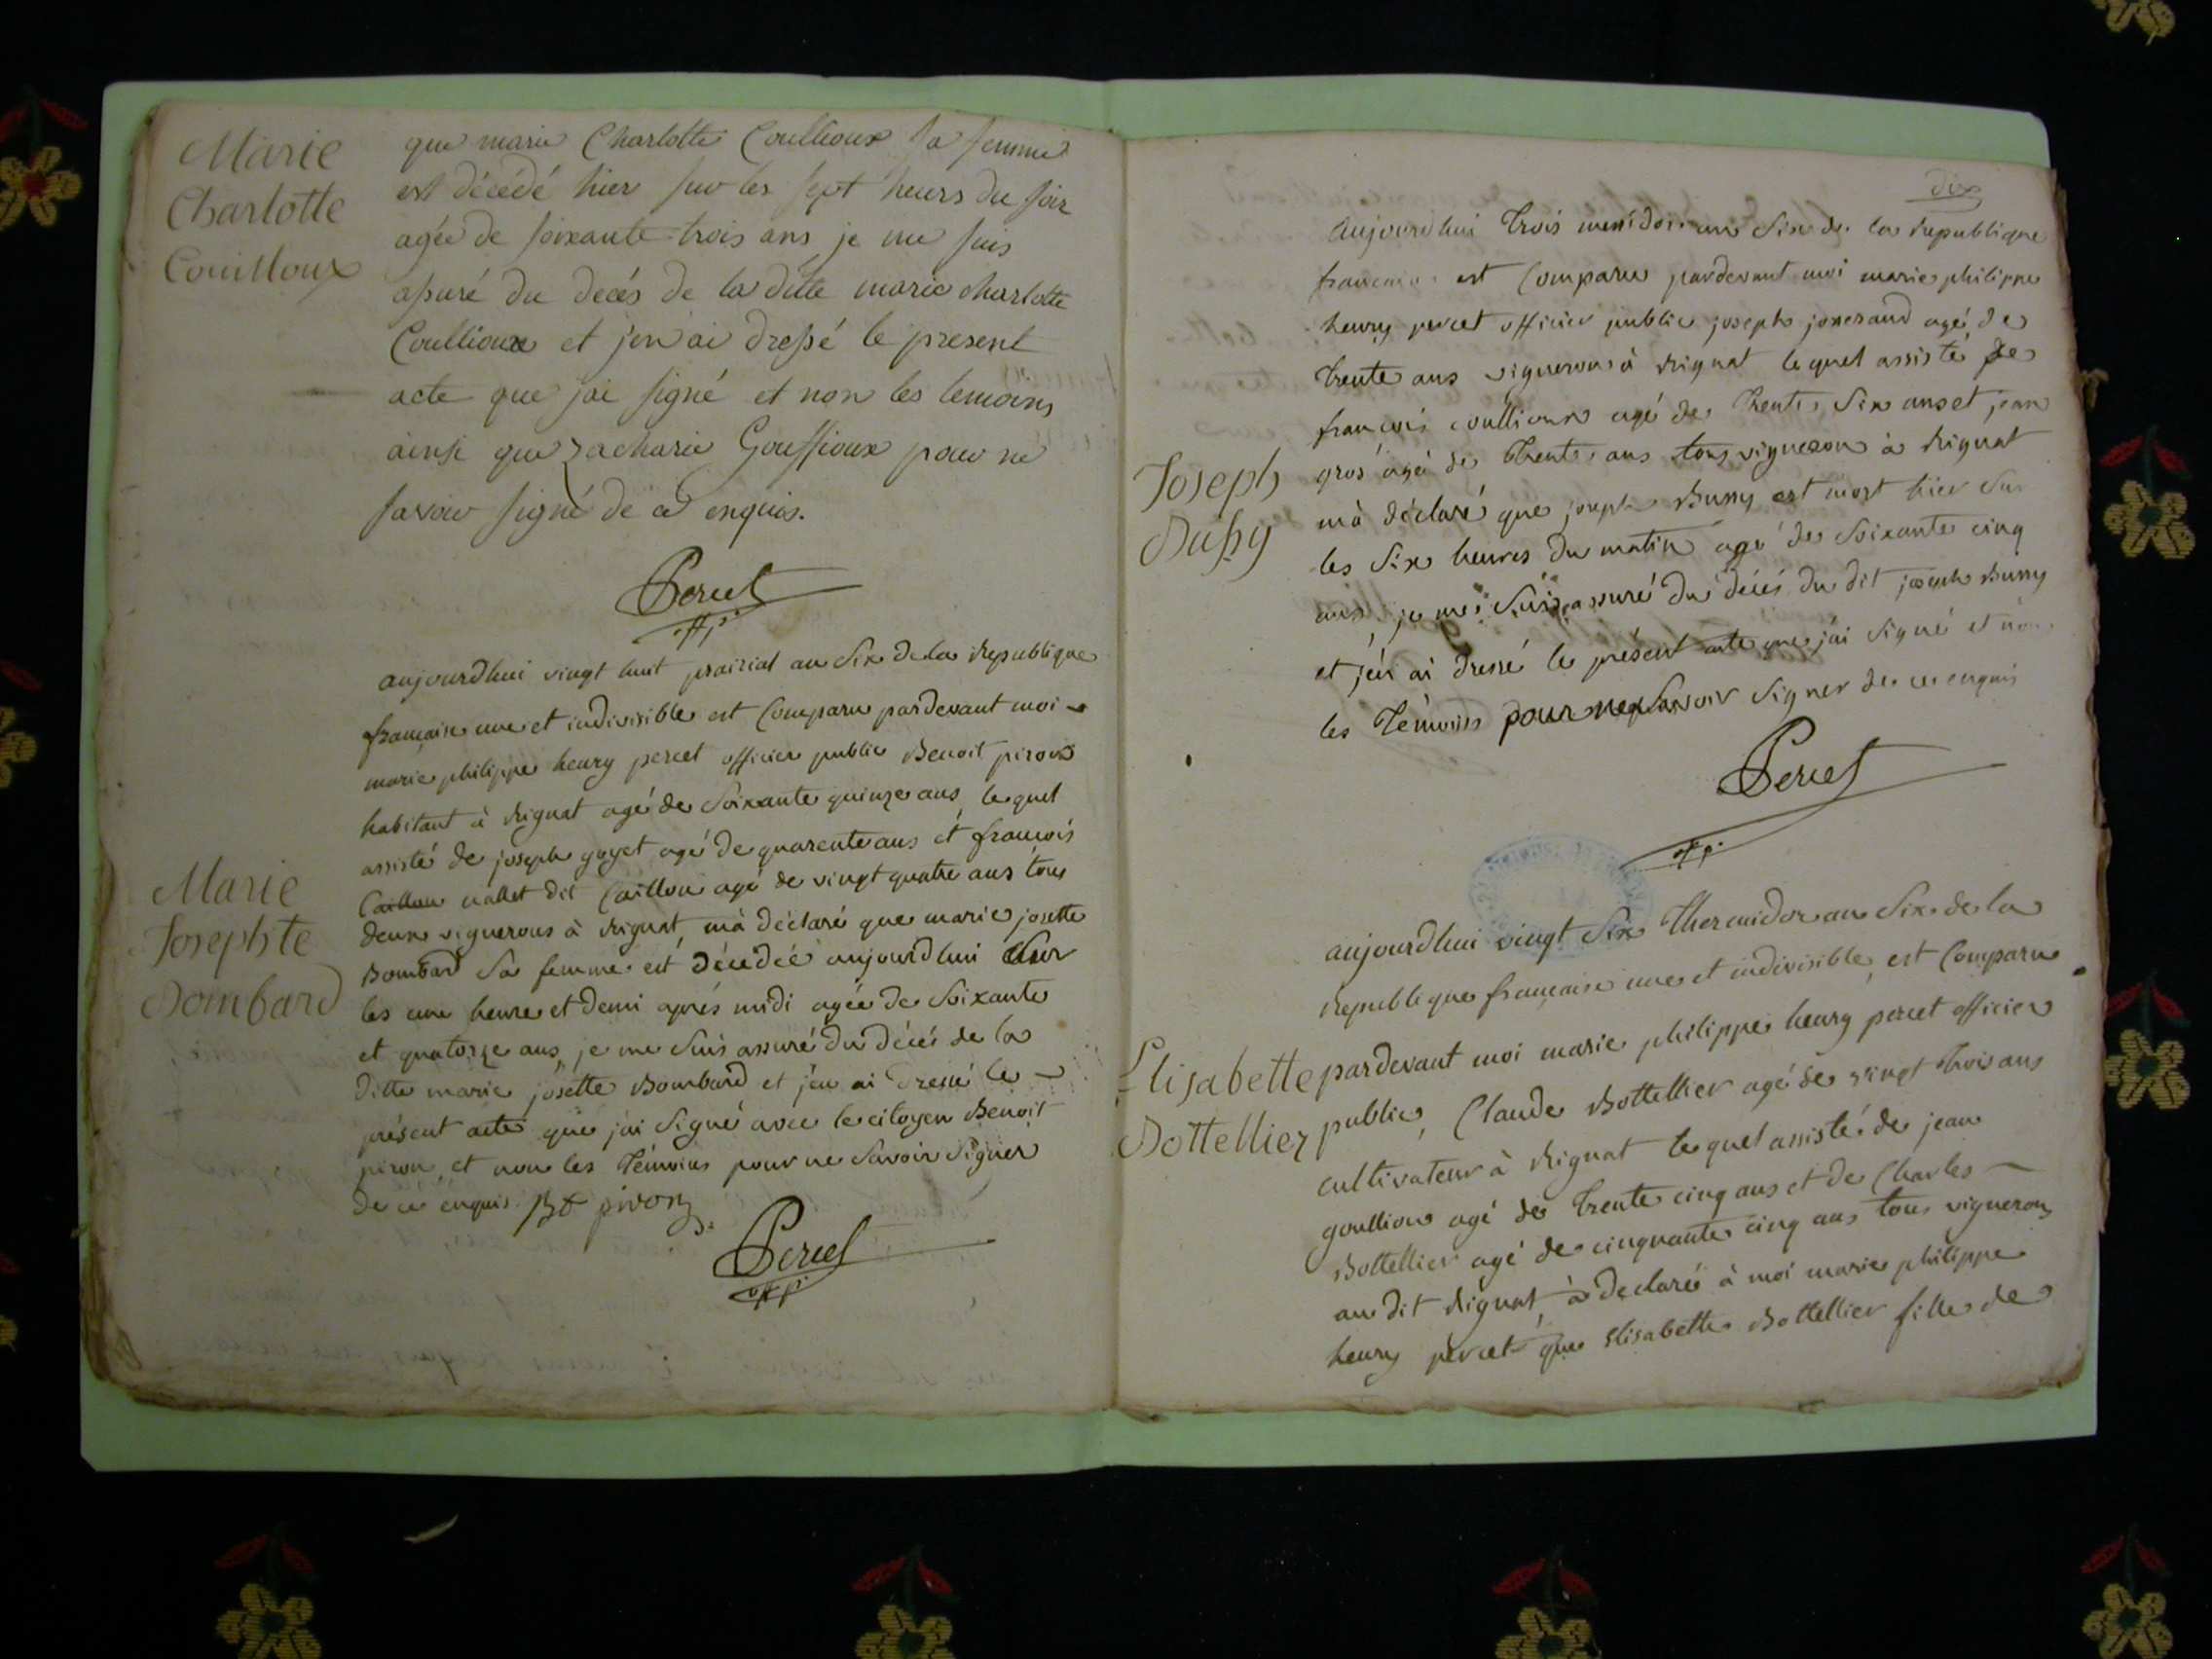 Marie
Charlotte
Couilloux
que marie Charlotte Coullioux sa femme
est décédé hier sur les sept heurs du soir
agée de soixante-trois ans je me suis
assuré du decés de la ditte marie charlotte
Coullioux et j'en ai dressé le present
acte que jai signé et non les temoins
ainsi que zacharie Gouffioux pour ne
savoir signé de ce enquis.
Percet
off p.
Marie
Josephte
Bombard
aujourdhui vingt huit prairial an Six de la Republique
française une et indivisible est Comparu pardevant moi
marie philippe henry percet officier public Benoit piron
habitant à Rignat agé de Soixante quinze ans, lequel
assisté de joseph goyet agé de quarente ans et françois
Caillon nallet dit Caillon agé de vingt quatre ans tous
deux vignerons à Rignat, mà déclaré que marie josette
Bombard Sa femme est décédéé aujourdhui Sur
les une heure et demi aprés midi agée de Soixante
et quatorze ans, je me Suis assuré du décés de la
ditte marie josette Bombard et j'en ai dressé le
présent acte que jai Signé avec le citoyen Benoit
piron et non les Témoins pour ne Savoir Signer
de ce enquis. Bt piron
Percet
off p.
dix
Joseph
Bussy
Aujourdhui Trois messidor an Six de la Republique
française est Comparu pardevant moi marie philippe
henry percet officier public joseph joserand agé de
trente ans vigneron à Rignat lequel assisté de
françois coullioux agé de Trente Six ans et jean
gros agé de Trente ans tous vigneron à Rignat
mà déclaré que joseph Bussy est mort hier Sur
les Six heures du matin agé de Soixante cinq
ans, je me Suis assuré du décés du dit joseph Bussy
et j'en ai dressé le présent acte que jai Signé et non
les Témoins pour ne Savoir Signer de ce enquis
Percet
off p.
Elisabette
Bottellier
aujourdhui vingt Six Thermidor an Six de la
Republique française une et indivisible, est Comparu
pardevant moi marie philippe henry percet officier
public, Claude Bottellier agé de vingt Trois ans
cultivateur à Rignat lequel assisté de jean
goullion agé de Trente cinq ans et de Charles
Bottellier agé de cinquante cinq ans tous vignerons
au dit Rignat, à declaré à moi marie philippe
henry percet que Elisabette Bottellier fille de